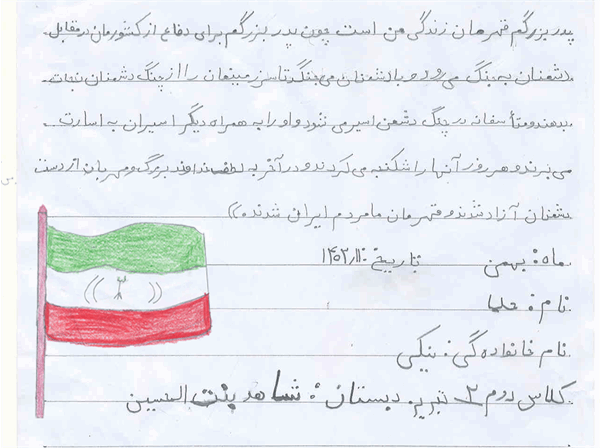 پدربزرگم قهرمان زندگی من است چون پدربزرگم برای دفاع از کشورمان در مقابل
دشمنان به جنگ می رود و با دشمنان می جنگد تا سرزمینمان را از چنگ دشمنان نجات
بدهند و متأسفانه در چنگ دشمن اسیر می شود و او را به همراه دیگر اسیران به اسارت
می برند و هر روز آنها را شکنجه می کردند و در آخر به لطف خداوند بزرگ و مهربان از دست
دشمنان آزاد شدند و قهرمان ما مردم ایران شدند))
ماه: بهمن تاریخ: ۱۴۰۲/۱۱
نام:
نام خانوادگی: نیکی
کلاس دوم ۲ تبریز دبستان: شاهد بنت الحسین